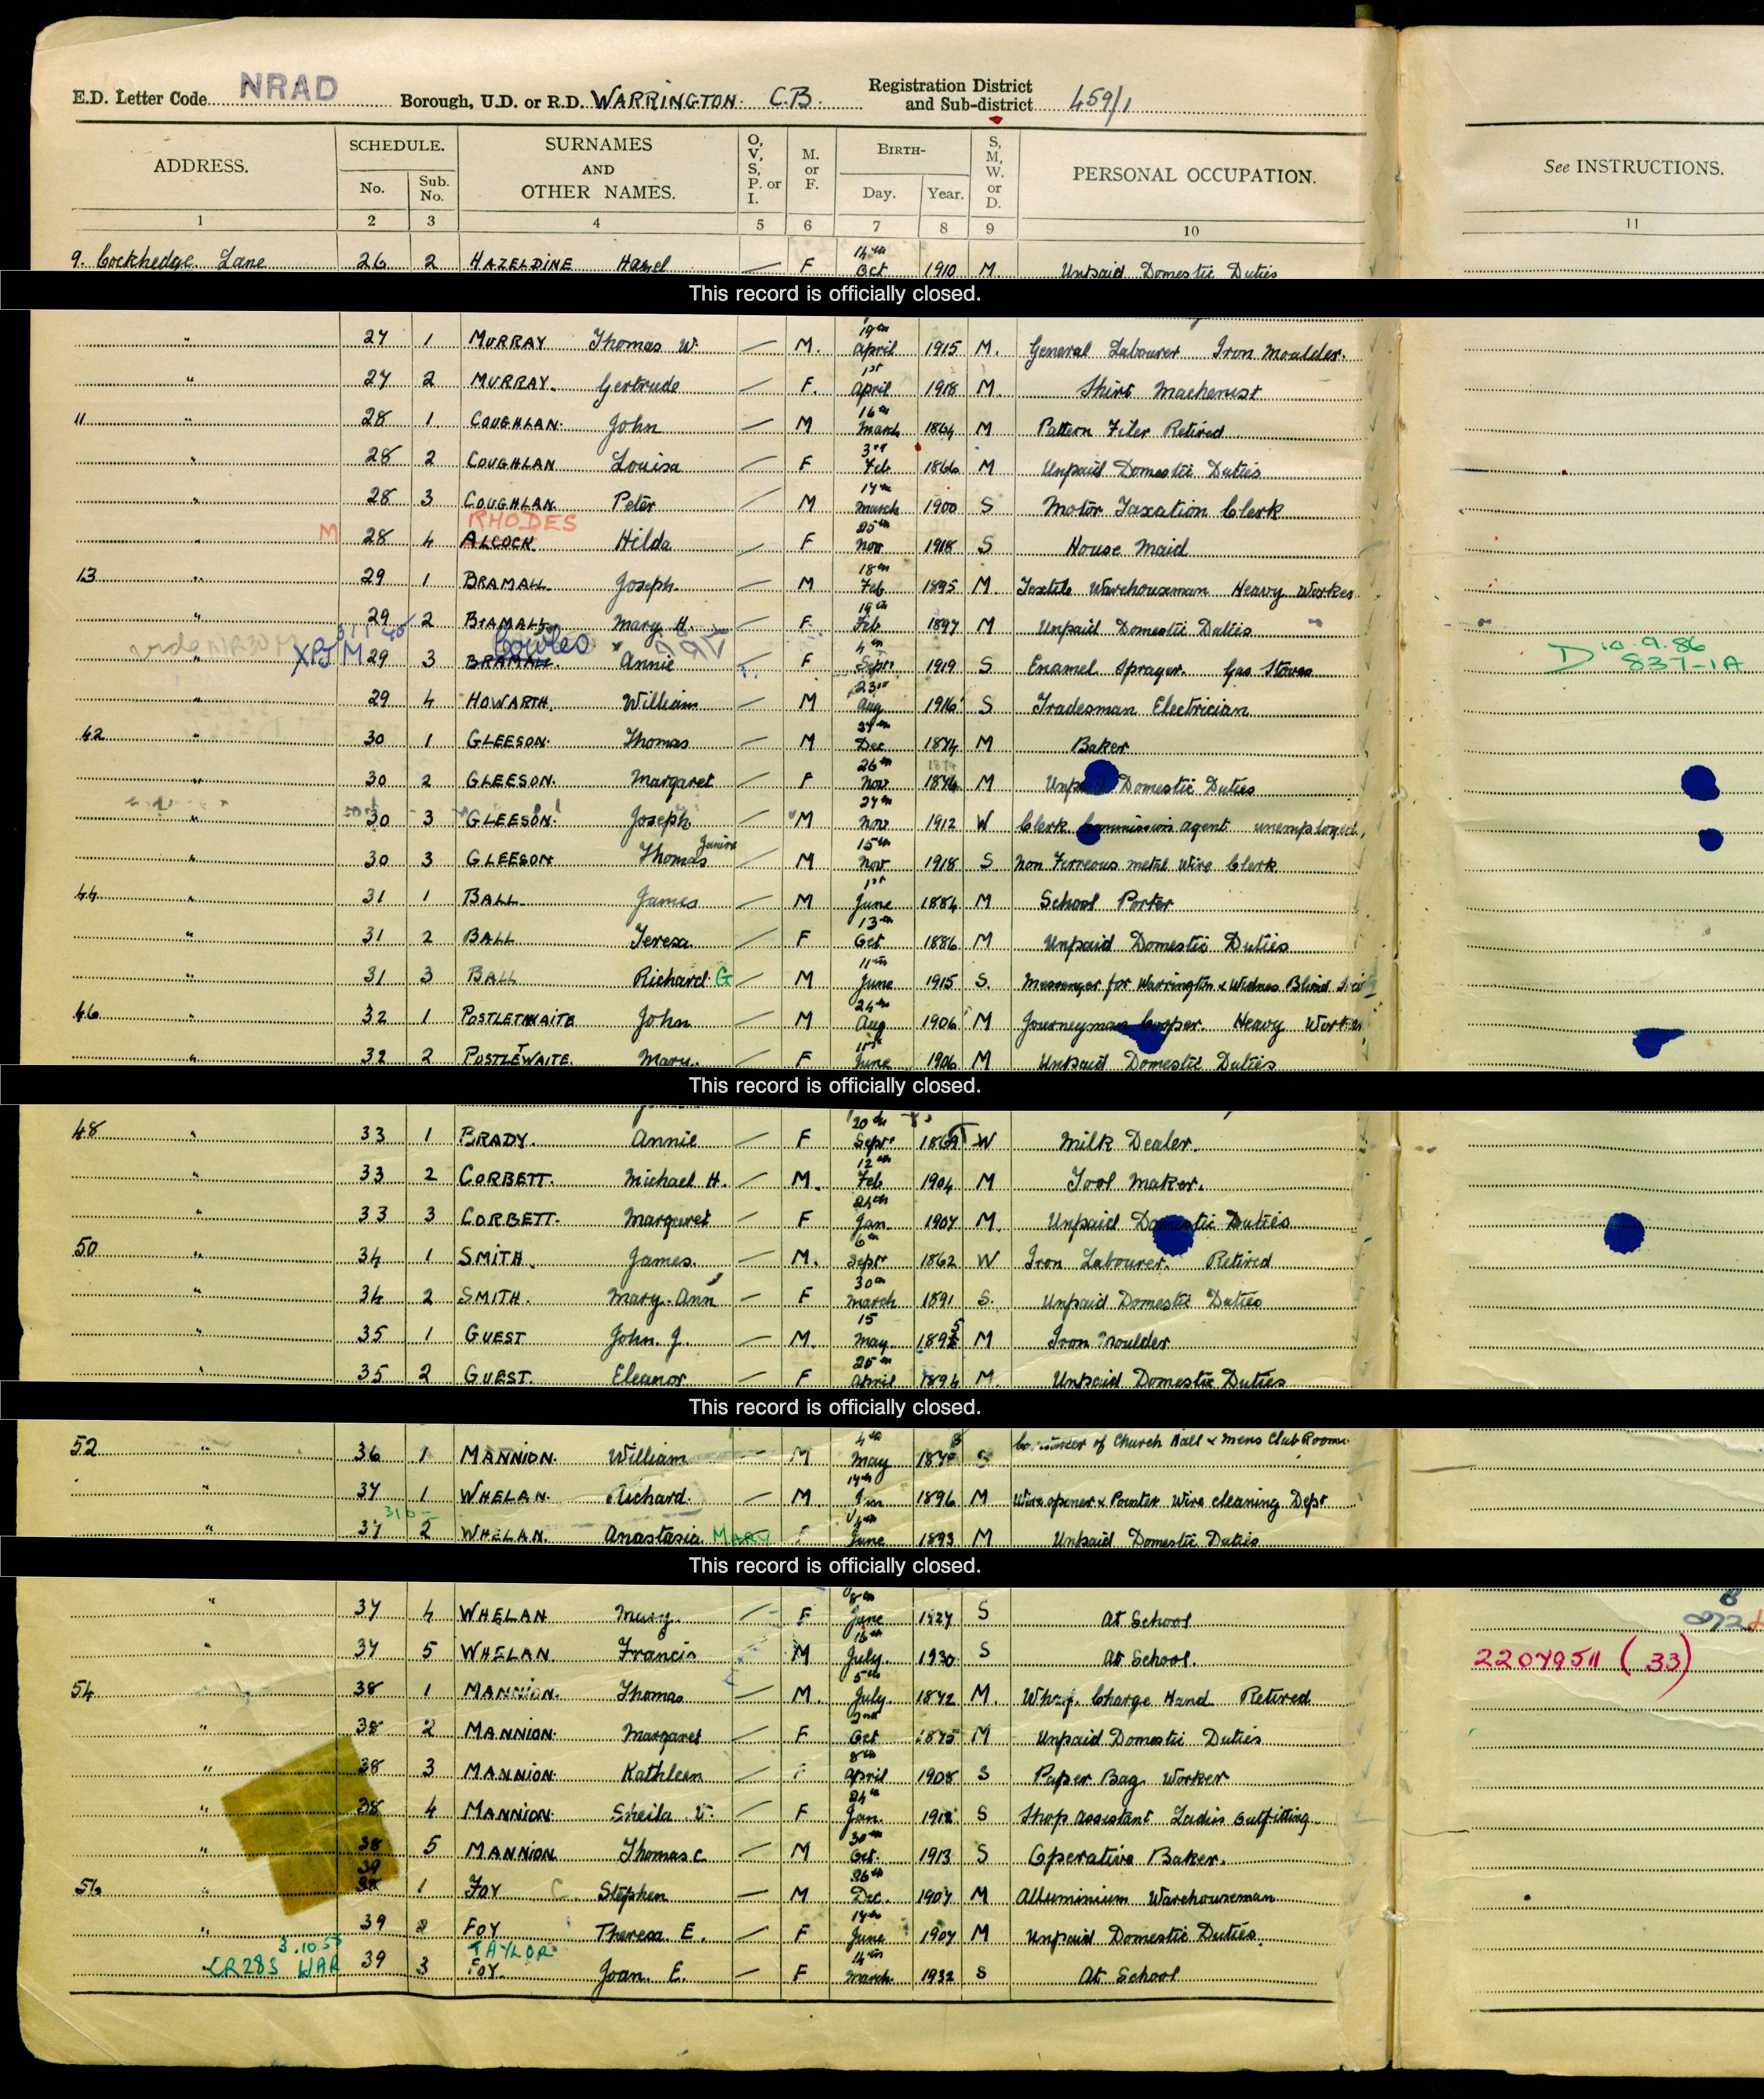 E.D. Letter Code NRAD Borough, U.D. or R.D. WARRINGTON C.B. Registration District and Sub-district 459/1
ADDRESS. SCHEDULE. No. Sub. No. SURNAMES AND OTHER NAMES. O, V, S, P. or I. M. or F. BIRTH- Day. Year. S, M, W. or D. PERSONAL OCCUPATION. See INSTRUCTIONS.
1 2 3 4 5 6 7 8 9 10 11
9. Cockhedge Lane 26 2 HAZELDINE Hazel — F 14th Oct 1910 M Unpaid Domestic Duties
This record is officially closed.
" 27 1 MURRAY Thomas W. — M. 19th April 1915 M. General Labourer Iron Moulder.
" 27 2 MURRAY. Gertrude — F. 1st April 1918 M. Shirt Machenist
11 " 28 1 COUGHLAN. John — M 16th March 1864 M Pattern Filer Retired
" 28 2 COUGHLAN Louisa — F 3rd Feb 1866 M Unpaid Domestic Duties
" 28 3 COUGHLAN Peter — M 17th March 1900 S Motor Taxation Clerk
RHODES
M " 28 4 ALCOCK Hilda — F 25th Nov 1918 S House Maid
13 " 29 1 BRAMALL Joseph. — M 18th Feb 1895 M Textile Warehouseman Heavy Worker
" 29 2 BRAMALL Mary H. — F 19th Feb 1897 M Unpaid Domestic Duties
" 29 3 BRAMALL Annie F 4th Sept 1919 S Enamel Sprayer. Gas Stoves D 10.9.86 837-1A
" 29 4 HOWARTH. William — M 23rd Aug 1916 S Tradesman Electrician
42 " 30 1 GLEESON. Thomas — M Dec 1874 M Baker
" 30 2 GLEESON. Margaret — F 26th Nov 1876 M Unpaid Domestic Duties
" 30 3 GLEESON. Joseph — M 27th Nov 1912 W Clerk Commission agent unemployed,
" 30 3 GLEESON Thomas Junior — M 15th Nov 1918 S Non Ferreous metal Wire Clerk.
44 " 31 1 BALL James — M 1st June 1884 M School Porter
" 31 2 BALL Teresa — F 13th Oct 1886 M Unpaid Domestic Duties
" 31 3 BALL Richard G — M 11th June 1915 S. Messenger for Warrington & Widnes Blind
46 " 32 1 POSTLETHWAITE John — M 24th Aug 1906 M Journeyman Cooper. Heavy Worker
" 32 2 POSTLETWAITE. Mary. — F June 1906 M Unpaid Domestic Duties
This record is officially closed.
48 " 33 1 BRADY. Annie — F 20th Sept 1869 W Milk Dealer.
" 33 2 CORBETT. Michael H. — M. 12th Feb 1904 M Tool Maker.
" 33 3 CORBETT. Margaret — F 24th Jan 1907 M. Unpaid Domestic Duties
50 " 34 1 SMITH. James. — M. 6th Sept 1862 W Iron Labourer. Retired
" 34 2 SMITH. Mary-Ann — F 30th March 1891 S. Unpaid Domestic Duties
" 35 1 GUEST John. J. — M. 15 May 1895 M Iron Moulder
" 35 2 GUEST. Eleanor — F 25th April 1894 M. Unpaid Domestic Duties
This record is officially closed.
52 " 36 1 MANNION. William — M 4th May 1878 S of Church Hall & Mens Club Rooms
" 37 1 WHELAN. Richard. — M. 14th 1896 M Wire opener & Pointer Wire cleaning Dept
" 37 2 WHELAN. Anastasia MARY F June 1893 M Unpaid Domestic Duties
This record is officially closed.
" 37 4 WHELAN Mary. — F 8th June 1927 S At School
" 37 5 WHELAN. Francis M 16th July. 1930 S At School. 22079511 (33)
54 38 1 MANNION. Thomas — M. 5th July. 1872 M. Wharf. Charge Hand Retired
" 38 2 MANNION. Margaret — F 2nd Oct 1875 M Unpaid Domestic Duties
" 38 3 MANNION. Kathleen — F 8th April 1908 S Paper Bag Worker
" 38 4 MANNION. Sheila V. — F 24th Jan. 1912 S Shop Assistant Ladies Outfitting
" 38 5 MANNION Thomas C — M 30th Oct. 1913 S Operative Baker.
56 " 39 1 FOY C. Stephen — M 26th Dec. 1907 M Alluminium Warehouseman
" 39 2 FOY Theresa E. — F 14th June 1907 M Unpaid Domestic Duties.
3.10.53 TAYLOR
CR283 WAR 39 3 FOY. Joan. E. — F 14th March 1932 S At School